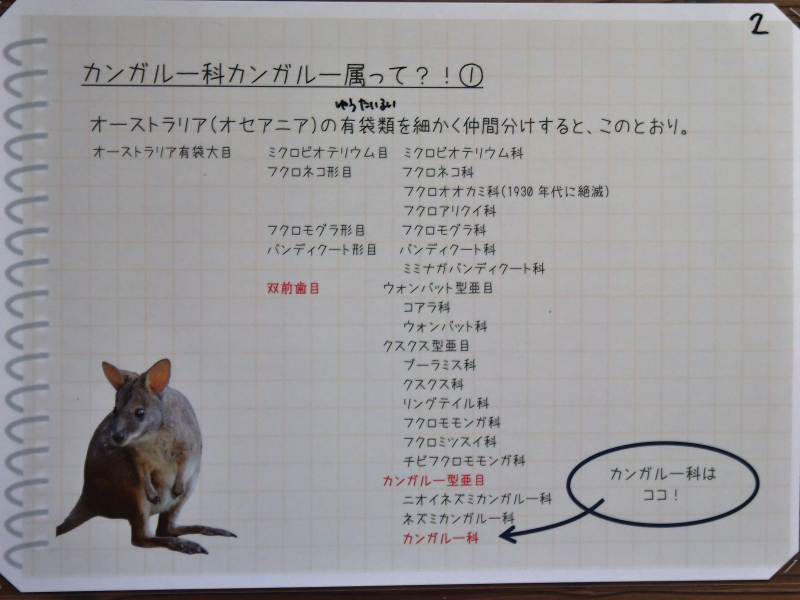 2
カンガルー科カンガルー属って？！①
ゆうたいるい
オーストラリア(オセアニア)の有袋類を細かく仲間分けすると、このとおり。
オーストラリア有袋大目 ミクロビオテリウム目 ミクロビオテリウム科
フクロネコ形目 フクロネコ科
フクロオオカミ科(1930年代に絶滅)
フクロアリクイ科
フクロモグラ形目 フクロモグラ科
バンディクート形目 バンディクート科
ミミナガバンディクート科
双前歯目 ウォンバット型亜目
コアラ科
ウォンバット科
クスクス型亜目
ブーラミス科
クスクス科
リングテイル科
フクロモモンガ科
フクロミツスイ科
チビフクロモモンガ科
カンガルー型亜目
ニオイネズミカンガルー科
ネズミカンガルー科
カンガルー科
カンガルー科は
ココ！